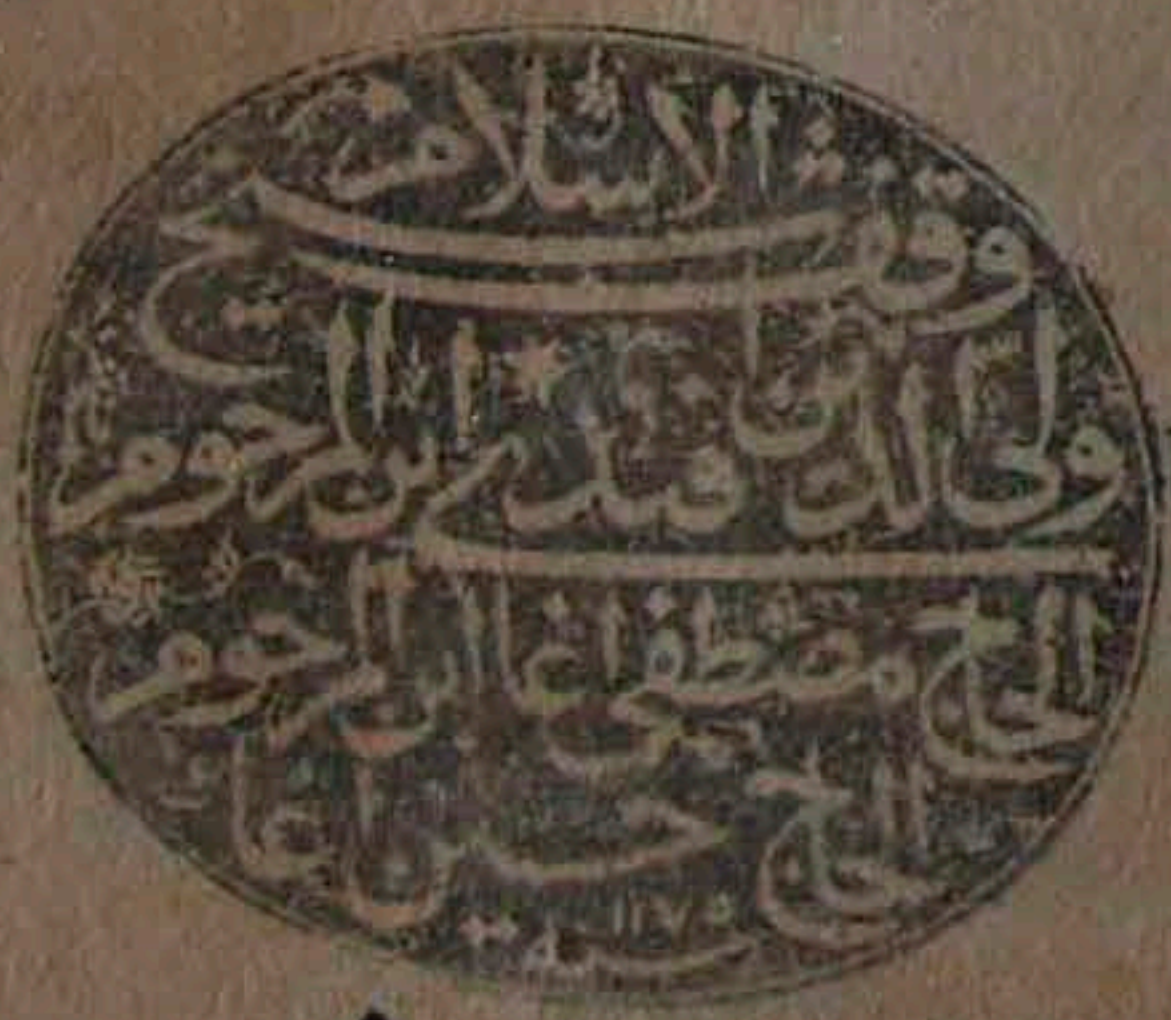 وقف شيخ الاسلام
ولى الدين افندى ابن المرحوم
الحاج مصطفى اغا ابن المرحوم
الحاج حسين اغا
سنة ١١٧٥